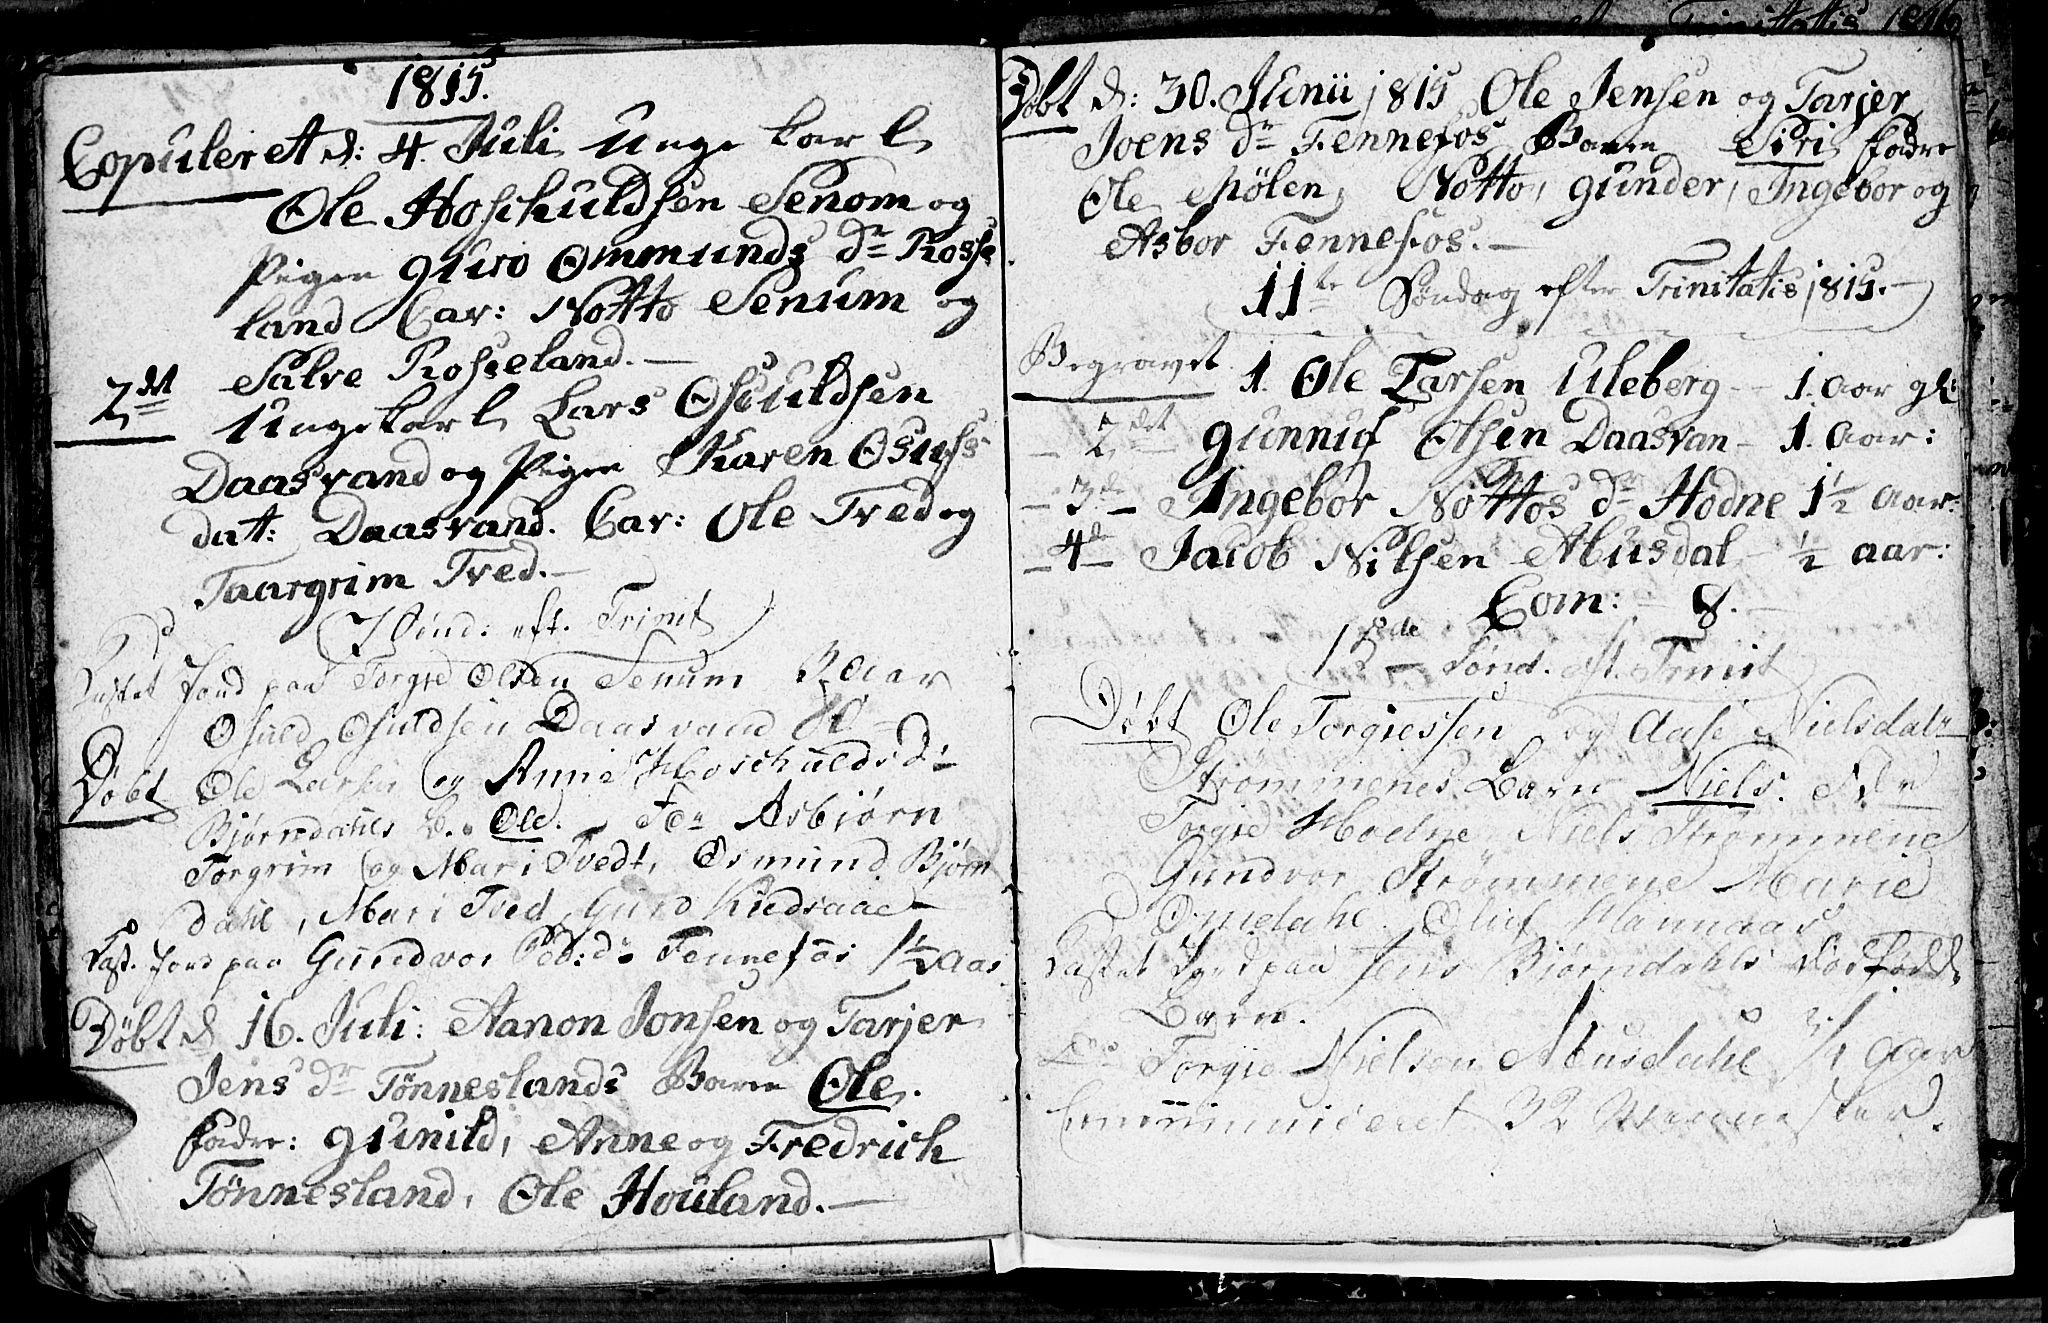 1815.
Copuleret d: 4. Juli Unge karl
Ole Hoschuldsen Senom og
Pigen guro Ommunds dr Rosse
land Cav: Notto Senum og
Salve Rosseland.—
2det Ungekarl Lars Osuuldsen
Daasvand og Pigen Karen Osufs
dat: Daasvand. Cav: Ole Tved og
Taargrim Tved.—
7 Sønd: eft. Trinit
Kastet Jord paa Torgie Olsen Senum
Osuld Osuldsen Daasvand
Døbt Ole Larsen og Anne Hoschulds d:
Bjørndahls B. Ole. Asbjørn
Torgrim og Mari Tvedt, Osmund Bjørn
dahl, Mari Tved,
Kast. Jord paa Gundvor Ped: d: Fennefos 1½ Aar
Døbt d 16. Juli: Aanon Jonsen og Tarjer
Jens dr Tønneslands Barn Ole.
fadre: gunild, Anne og Fredrich
Tønnesland, Ole Houland.—
Trinitatis 1816
Døbt d: 30. Junii 1815 Ole Jensen og Tarjer
Joens dr Fennefos Barn Siri fadre
Ole Mølen, Notto, gunder, Ingebor og
Asbor Fennefos.—
11te Søndag efter Trinitatis 1815.—
Begravet 1. Ole Larsen Uleberg — 1. Aar gl:
— 2det gunnuf Olsen Daasvan — 1. Aar:
— 3d — Ingebor Nottos dr Hodne 1½ Aar:
— 4d — Jacob Nilsen Musdal — ½ aar:
Com: — 8.—
Sønd. eft. Trinit
Døbt Ole Torgiessen og Aase Nielsdatr
Strømmenes Barn Niels.
Torgie Hodne Niels Strømmene
Gundvor Strømmene Marie
Omdahl. Oluf
Kastet Jord paa Jens Bjørndahls Dødfødde
Barn.
Do Torgie Nielsen Musdahl ¾ Aar
Communiceret 32 Mennesker.